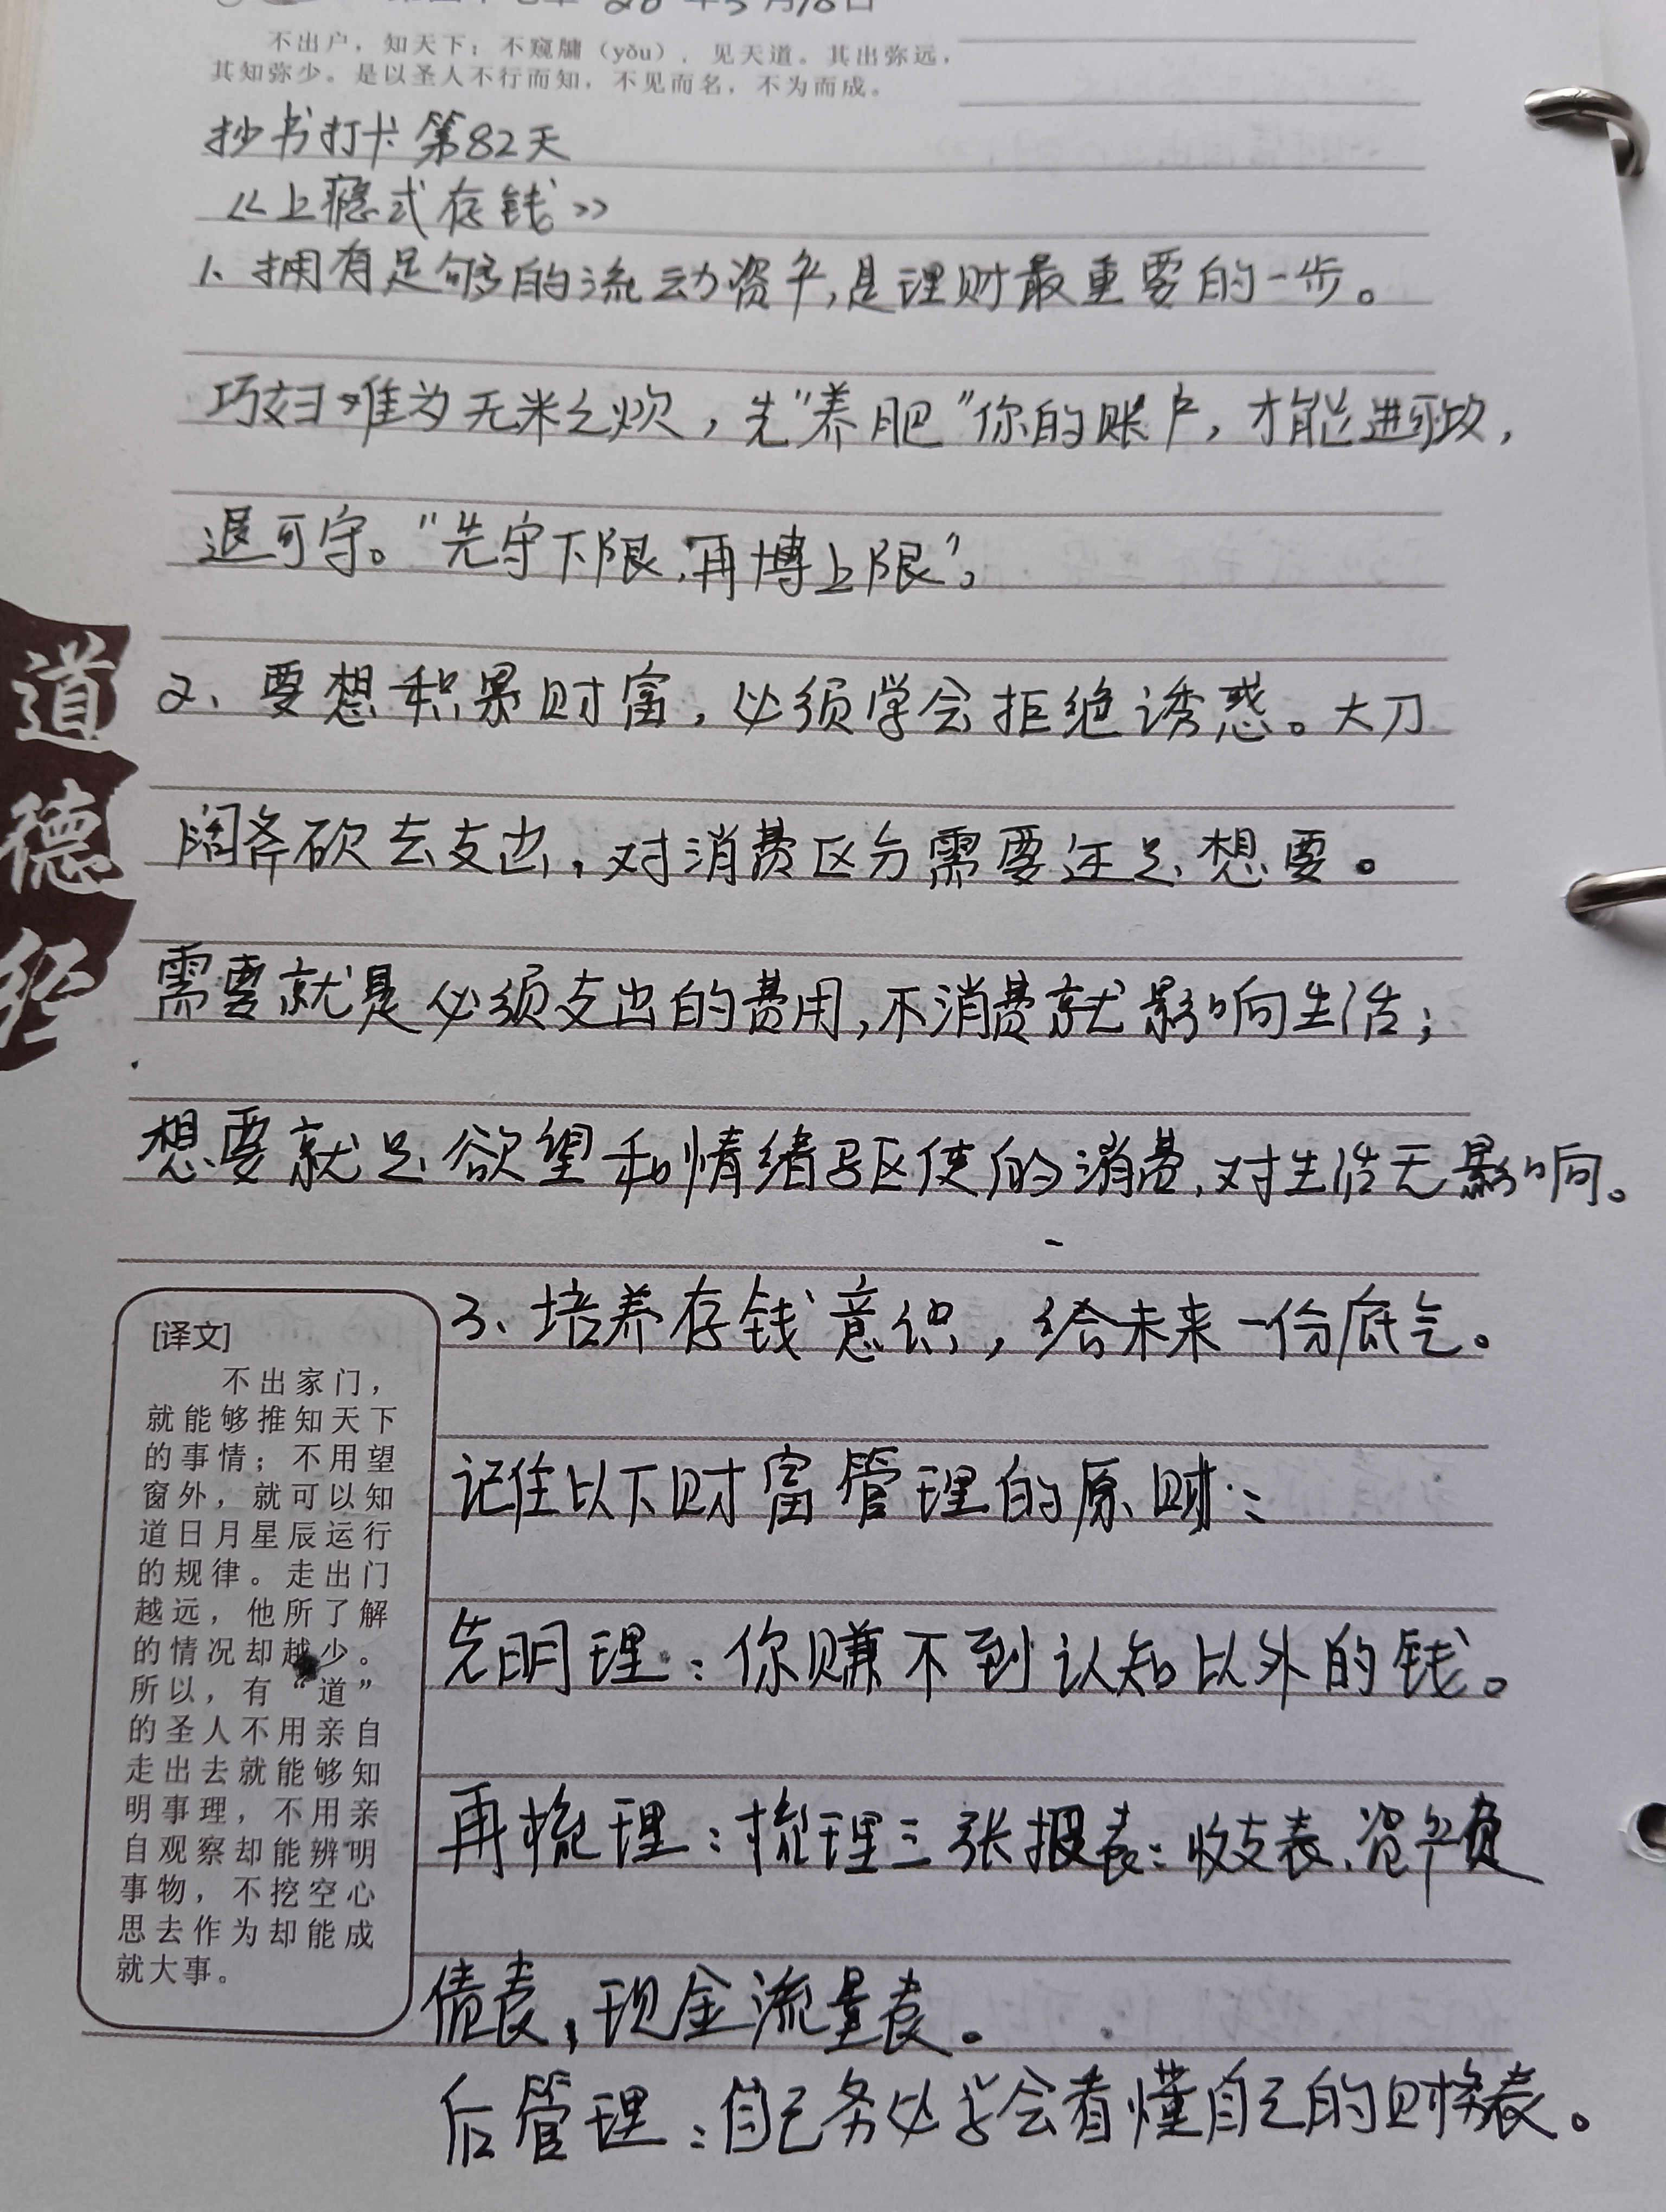 26年3月18日
不出户，知天下；不窥牖（yǒu），见天道。其出弥远，
其知弥少。是以圣人不行而知，不见而名，不为而成。
抄书打卡第82天
《上瘾式存钱》
1、拥有足够的流动资产，是理财最重要的一步。
巧妇难为无米之炊，先“养肥”你的账户，才能进可攻，
退可守。“先守下限，再博上限”。
2、要想积累财富，必须学会拒绝诱惑。大刀
阔斧砍去支出，对消费区分需要还是想要。
需要就是必须支出的费用，不消费就影响生活；
想要就是欲望和情绪驱使的消费，对生活无影响。
道
德
经
3、培养存钱意识，给未来一份底气。
记住以下财富管理的原则：
先明理：你赚不到认知以外的钱。
再梳理：梳理三张报表：收支表、资产负
债表，现金流量表。
后管理：自己务必学会看懂自己的财务表。
[译文]
不出家门，
就能够推知天下
的事情；不用望
窗外，就可以知
道日月星辰运行
的规律。走出门
越远，他所了解
的情况却越少。
所以，有“道”
的圣人不用亲自
走出去就能够知
明事理，不用亲
自观察却能辨明
事物，不挖空心
思去作为却能成
就大事。